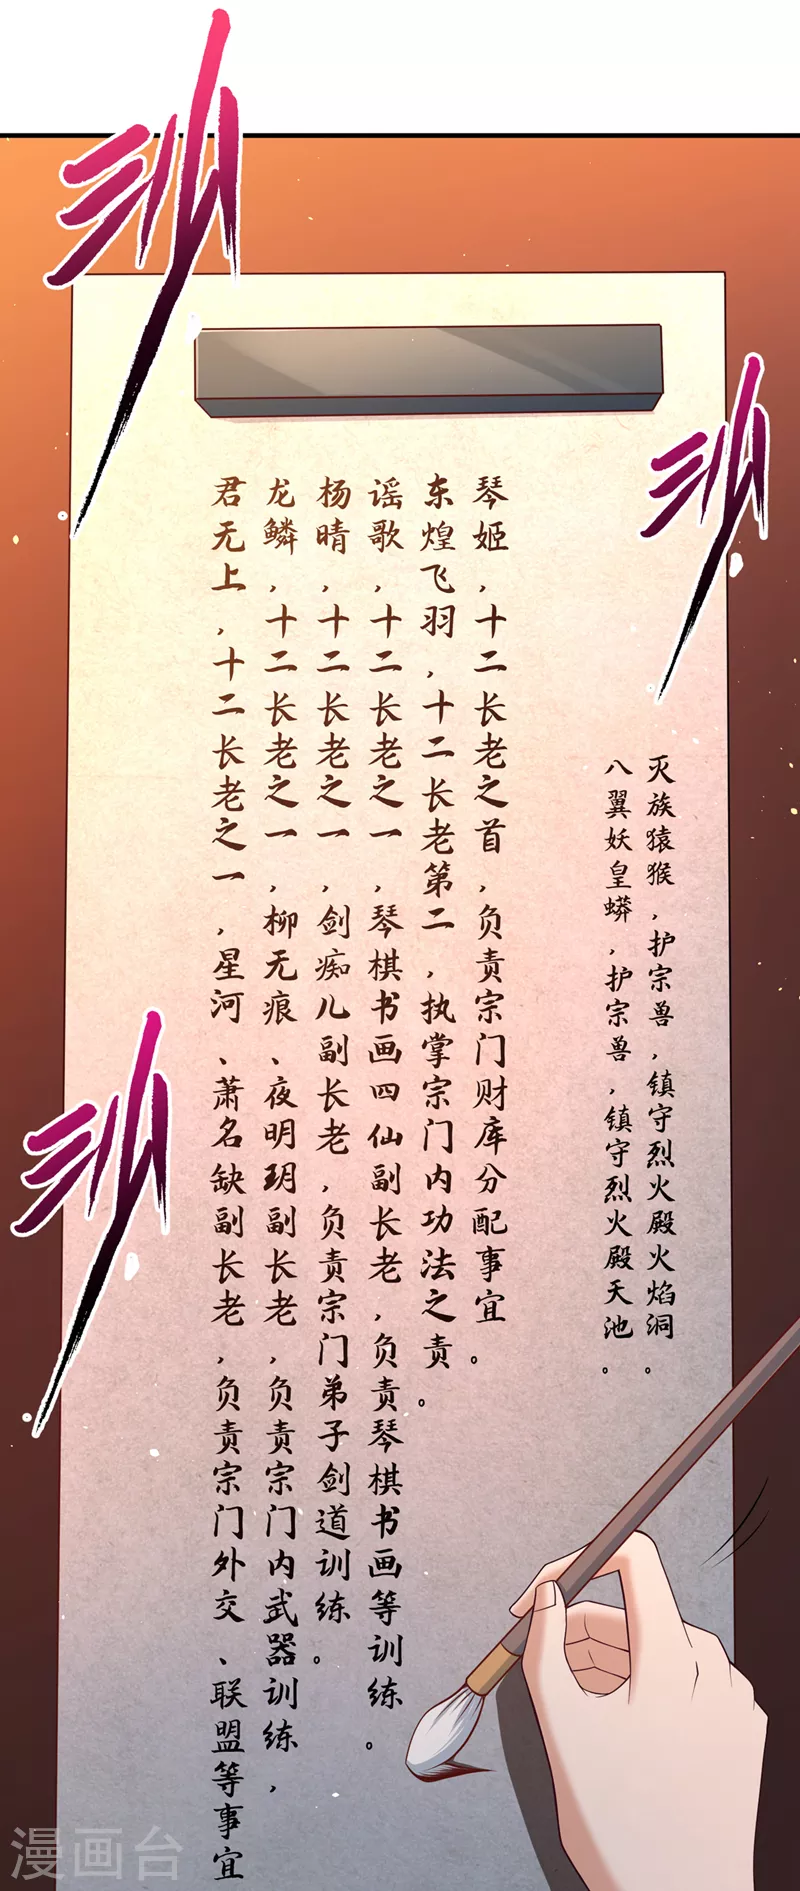 灭族猿猴，护宗兽，镇守烈火殿火焰洞。
八翼妖皇蟒，护宗兽，镇守烈火殿天池。
琴姬，十二长老之首，负责宗门财库分配事宜。
东煌飞羽，十二长老第二，执掌宗门内功法之责。
谣歌，十二长老之一，琴棋书画四仙副长老，负责琴棋书画等训练。
杨晴，十二长老之一，剑痴儿副长老，负责宗门弟子剑道训练。
龙鳞，十二长老之一，柳无痕、夜明玥副长老，负责宗门内武器训练，
君无上，十二长老之一，星河、萧名缺副长老，负责宗门外交、联盟等事宜
漫画台